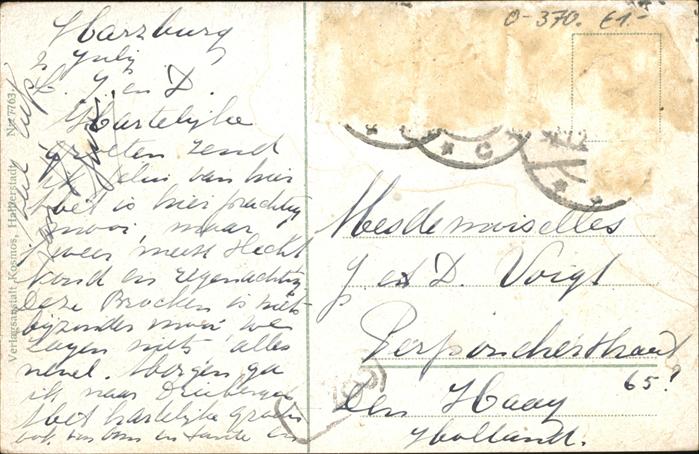 Harzburg
2 July
L. J. en D.
Hartelijke
groeten zend
ik van hier
het is hier prachtig
mooi maar
weer meest slecht
koud en regenachtig
Deze Brocken is niet
bijzonder mooi we
zagen niets alles
nevel. Morgen ga
ik naar Driebergen
Met hartelijke groeten
ook van oom en tante en
Verlagsanstalt „Kosmos“, Halberstadt. No. 7763
0-370. €1.-
C
Mesdemoiselles
J. en D. Voigt
Perponcherstraat
65?
Den Haag
Holland.